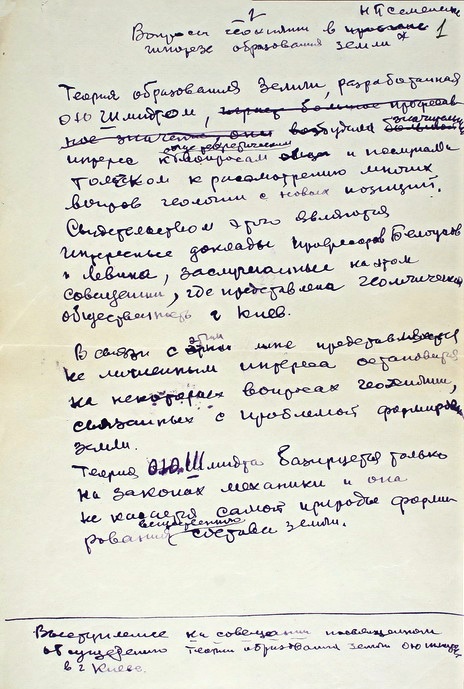 1
Н П Семененко
Вопросы геохимии в
гипотезе образования земли х 1
Теория образования Земли, разработанная
ОЮ Шмидтом,
возбудила
интерес к общетеоретическим вопросам и послужила
толчком к рассмотрению многих
вопросов геологии с новых позиций.
Свидетельством этого являются
интересные доклады профессоров Белоусова
и Левина, заслушанные на этом
совещании, где представлена геологическая
общественность г Киев.
В связи с этим мне представляется
не лишенным интереса остановиться
на некоторых вопросах геохимии,
связанных с проблемой формирован
земли.
Теория О.Ю. Шмидта базируется только
на законах механики и она
не касается самой природы форми
рования вещественного состава земли.
Выступление на совещании посвященном
обсуждению теории образования земли ОЮ Шмидта
в г Киеве.